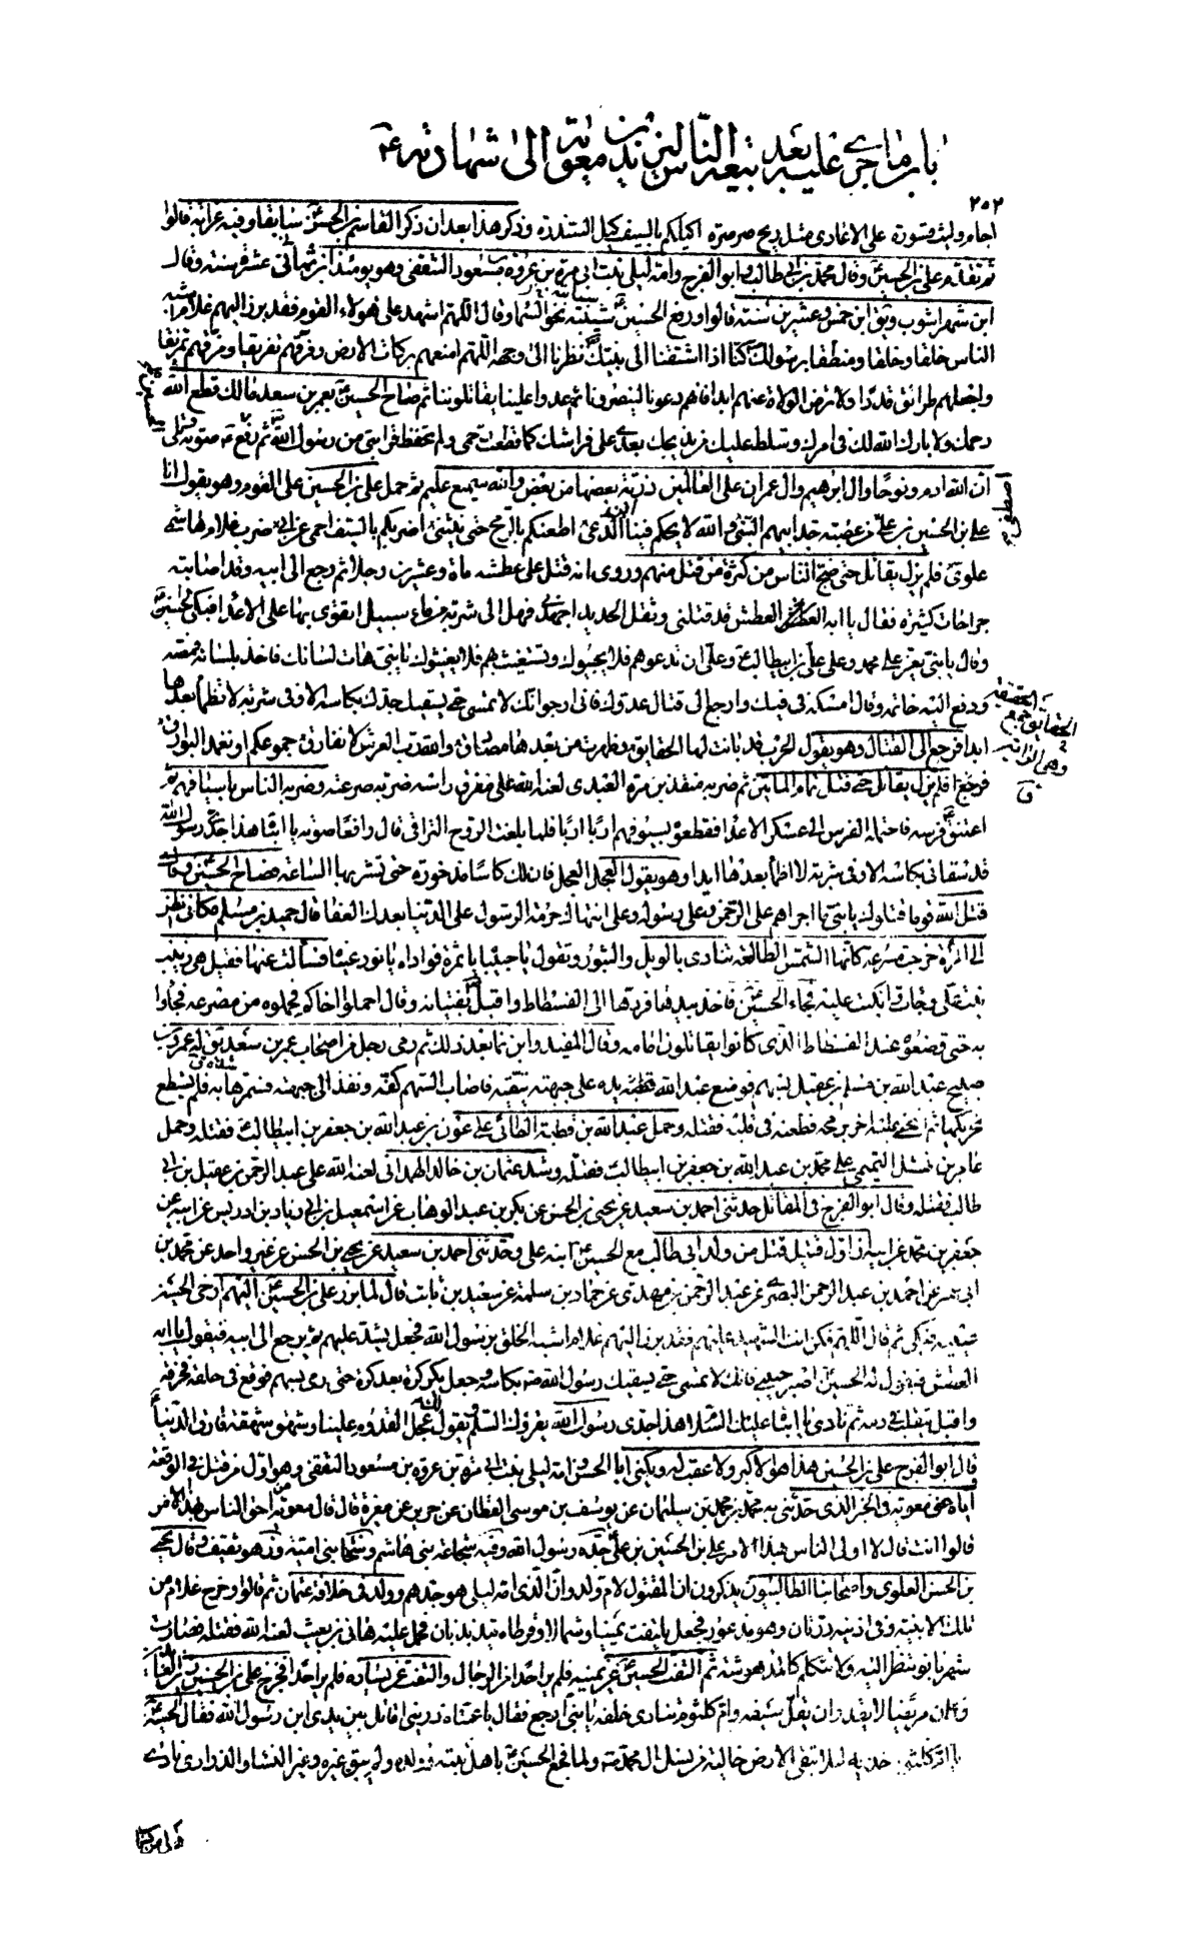 باب ما جرى عليه بعد بيعة الناس ليزيد بن معوية الى شهادته
٢٥٢
اجام وليث قسورة على الاعادى مثل ريح صرصرة اكيلكم بالسيف كيل السندرة وذكر هذا بعد ان ذكر القاسم بن الحسن سابقا وفيه غرابة قالوا
ثم تقدم على بن الحسين وقال محمد بن ابى طالب وابو الفرج وامه ليلى بنت ابى مرة بن عروة بن مسعود الثقفى وهو يومئذ ابن ثمانى عشرة سنة وقال
ابن شهراشوب ويق ابن خمس وعشرين سنة قالوا ورفع الحسين سبابته نحو السماء وقال اللهم اشهد على هؤلاء القوم فقد برز اليهم غلام اشبه
الناس خلقا وخلقا ومنطقا برسولك كنا اذا اشتقنا الى نبيك نظرنا الى وجهه اللهم امنعهم بركات الارض وفرقهم تفريقا ومزقهم تمزيقا
واجعلهم طرائق قددا ولا ترض الولاة عنهم ابدا فانهم دعونا لينصرونا ثم عدوا علينا يقاتلوننا ثم صاح الحسين بعمر بن سعد مالك قطع الله
رحمك ولا بارك الله لك فى امرك وسلط عليك من يذبحك بعدى على فراشك كما قطعت رحمى ولم تحفظ قرابتى من رسول الله ثم رفع صوته وتلى
ان الله اصطفى ادم ونوحا وال ابراهيم وال عمران على العالمين ذرية بعضها من بعض والله سميع عليم ثم حمل على بن الحسين على القوم وهو يقول انا
على بن الحسين بن على من عصبة جد ابيهم النبى والله لا يحكم فينا ابن الدعى اطعنكم بالرمح حتى ينثنى اضربكم بالسيف احمى عن ابى ضرب غلام هاشمى
علوى فلم يزل يقاتل حتى ضج الناس من كثرة من قتل منهم وروى انه قتل على عطشه مأة وعشرين رجلا ثم رجع الى ابيه وقد اصابته
جراحات كثيرة فقال يا ابه العطش قد قتلنى وثقل الحديد اجهدنى فهل الى شربة من ماء سبيل اتقوى بها على الاعداء فبكى الحسين
وقال يا بنى يعز على محمد وعلى على بن ابيطالب وعلى ان تدعوهم فلا يجيبوك وتستغيث بهم فلا يغيثوك يا بنى هات لسانك فاخذ بلسانه فمصه
ودفع اليه خاتمه وقال امسكه فى فيك وارجع الى قتال عدوك فانى ارجو انك لا تمسى حتى يسقيك جدك بكاسه الاوفى شربة لا تظمأ بعدها
ابدا فرجع الى القتال وهو يقول الحرب قد بانت لها الحقايق وظهرت من بعدها مصادق والله رب العرش لا نفارق جموعكم او تغمد البوارق
فلم يزل يقاتل حتى قتل تمام المأتين ثم ضربه منقذ بن مرة العبدى لعنه الله على مفرق راسه ضربة صرعته وضربه الناس باسيافهم ثم
اعتنق فرسه فاحتمله الفرس الى عسكر الاعداء فقطعوه بسيوفهم اربا اربا فلما بلغت الروح التراقى قال رافعا صوته يا ابتاه هذا جدى رسول الله
قد سقانى بكاسه الاوفى شربة لا اظمأ بعدها ابدا وهو يقول العجل العجل فان لك كاسا مذخورة حتى تشربها الساعة فصاح الحسين وقال
قتل الله قوما قتلوك يا بنى ما اجراهم على الرحمن وعلى رسوله وعلى انتهاك حرمة الرسول على الدنيا بعدك العفا قال حميد بن مسلم فكانى انظر
الى امراة خرجت مسرعة كانها الشمس الطالعة تنادى بالويل والثبور وتقول يا حبيباه يا ثمرة فواداه يا نور عيناه فسالت عنها فقيل هى زينب
بنت على وجاءت وانكبت عليه فجاء الحسين فاخذ بيدها فردها الى الفسطاط واقبل بفتيانه وقال احملوا اخاكم فحملوه من مصرعه فجاؤا
به حتى وضعوه عند الفسطاط الذى كانوا يقاتلون امامه وقال المفيد وابن نما بعد ذلك ثم رمى رجل من اصحاب عمر بن سعد يق له عمرو بن
صبيح عبد الله بن مسلم بن عقيل بسهم فوضع عبد الله يده على جبهته يتقيه فاصاب السهم كفه ونفذ الى جبهته فسمرها به فلم يستطع
تحريكها ثم انتحى عليه اخر برمحه فطعنه فى قلبه فقتله وحمل عبد الله بن قطبة الطائى على عون بن عبد الله بن جعفر بن ابيطالب فقتله وحمل
عامر بن نهشل التميمى على محمد بن عبد الله بن جعفر بن ابيطالب فقتله وشد عثمان بن خالد الهمدانى لعنه الله على عبد الرحمن بن عقيل بن ابى
طالب فقتله وقال ابو الفرج فى المقاتل حدثنى احمد بن سعيد عن يحيى بن الحسن عن بكر بن عبد الوهاب عن اسمعيل بن ابى زياد بن ادريس عن ابيه عن
جعفر بن محمد عن ابيه ان اول قتيل قتل من ولد ابى طالب مع الحسين ابنه على وحدثنى احمد بن سعيد عن يحيى بن الحسن عن غير واحد عن محمد بن
ابى عمير عن احمد بن عبد الرحمن البصرى عن عبد الرحمن بن مهدى عن حماد بن سلمة عن سعيد بن ثابت قال لما برز على بن الحسين اليهم ارخى الحسين
عينيه فبكى ثم قال اللهم فكن انت الشهيد عليهم فقد برز اليهم غلام اشبه الخلق برسول الله فجعل يشد عليهم ثم يرجع الى ابيه فيقول يا ابه
العطش فيقول له الحسين اصبر حبيبى فانك لا تمسى حتى يسقيك رسول الله بكاسه وجعل يكر كرة بعد كرة حتى رمى بسهم فوقع فى حلقه فخرقه
واقبل يتقلب فى دمه ثم نادى يا ابتاه عليك السلام هذا جدى رسول الله يقرؤك السلام ويقول عجل القدوم علينا وشهق شهقة فارق الدنيا
قال ابو الفرج على بن الحسين هذا هو الاكبر ولا عقب له ويكنى ابا الحسن وامه ليلى بنت ابى مرة بن عروة بن مسعود الثقفى وهو اول من قتل فى الوقعة
اياه عنى معوية فى الخبر الذى حدثنى به محمد بن محمد بن سليمان عن يوسف بن موسى القطان عن جرير عن مغيرة قال قال معوية من احق الناس بهذا الامر
قالوا انت قال لا اولى الناس بهذا الامر على بن الحسين بن على جده رسول الله وفيه شجاعة بنى هاشم وسخاء بنى امية وزهو ثقيف وقال يحيى
بن الحسن العلوى واصحابنا الطالبيون يذكرون ان المقتول لام ولد وان الذى امه ليلى هو جدهم وولد فى خلافة عثمان ثم قالوا وخرج غلام من
تلك الابنية وفى اذنيه درتان وهو مذعور فجعل يلتفت يمينا وشمالا وقرطاه يتذبذبان فحمل عليه هانى بن بعيث لعنه الله فقتله فصارت
شهربانو تنظر اليه ولا تتكلم كالمدهوشة ثم التفت الحسين عن يمينه فلم ير احدا من الرجال والتفت عن يساره فلم ير احدا فخرج على بن الحسين زين العابدين
وكان مريضا لا يقدر ان يقل سيفه وام كلثوم تنادى خلفه يا بنى ارجع فقال يا عمتاه ذرينى اقاتل بين يدى ابن رسول الله فقال الحسين
يا ام كلثوم خذيه لئلا تبقى الارض خالية من نسل ال محمد ولما فجع الحسين باهل بيته وولده ولم يبق غيره وغير النساء والذرارى نادى